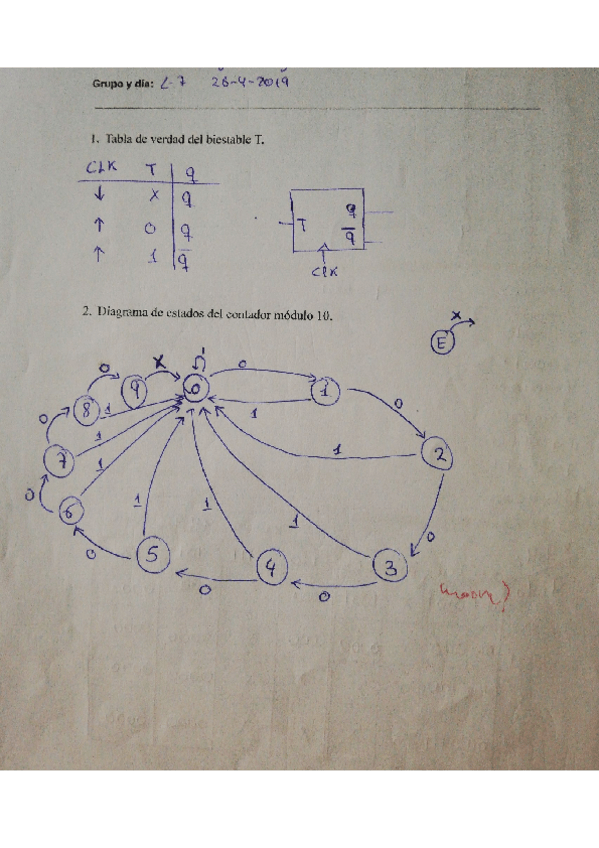 Grupo y día: L-7 26-4-2019
1. Tabla de verdad del biestable T.
CLK T q
↓ X q
↑ 0 q
↑ 1 q̅
T q
q̅
CLK
2. Diagrama de estados del contador módulo 10.
X
E
0 X 0
8 9 0 1
0 1 1 0
7 1 1 2
0 1
6 1 1 1 0
0 5 4 3
0 0